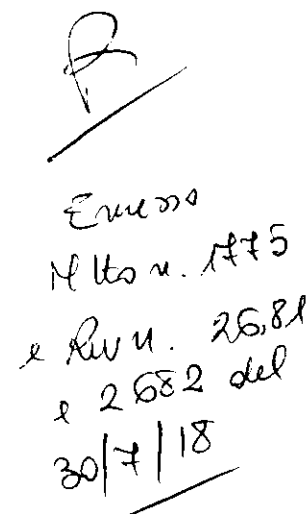 R
Emesso
M tto n. 1775
e Rev n. 26,81
e 2682 del
30/7/18